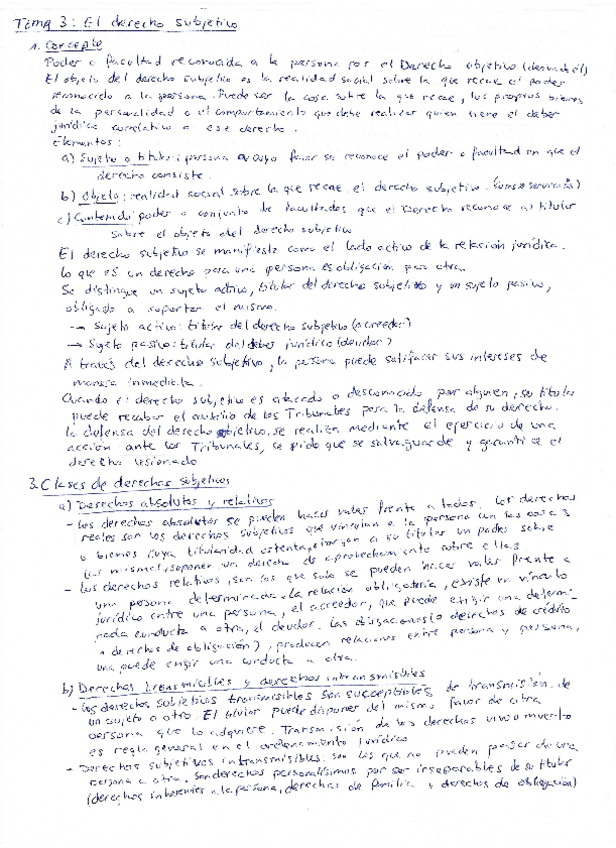 Tema 3: El derecho subjetivo
1. Concepto
Poder o facultad reconocida a la persona por el Derecho objetivo
El objeto del derecho subjetivo es la realidad social sobre la que recae el poder
reconocido a la persona. Puede ser la cosa sobre la que recae, los propios bienes
de la personalidad o el comportamiento que debe realizar quien tiene el deber
jurídico correlativo a ese derecho.
Elementos:
a) Sujeto o titular: persona a cuyo favor se reconoce el poder o facultad en que el
derecho consiste.
b) Objeto: realidad social sobre la que recae el derecho subjetivo.
c) Contenido: poder o conjunto de facultades que el Derecho reconoce al titular
sobre el objeto del derecho subjetivo
El derecho subjetivo se manifiesta como el lado activo de la relación jurídica.
Lo que es un derecho para una persona es obligación para otra.
Se distingue un sujeto activo, titular del derecho subjetivo y un sujeto pasivo,
obligado a soportar el mismo.
→ Sujeto activo: titular del derecho subjetivo (acreedor)
→ Sujeto pasivo: titular del deber jurídico (deudor)
A través del derecho subjetivo, la persona puede satisfacer sus intereses de
manera inmediata.
Cuando el derecho subjetivo es atacado o desconocido por alguien, su titular
puede recabar el auxilio de los Tribunales para la defensa de su derecho.
la defensa del derecho se realiza mediante el ejercicio de una
acción ante los Tribunales, se pide que se salvaguarde y garantice el
derecho lesionado
3. Clases de derechos subjetivos
a) Derechos absolutos y relativos
- los derechos absolutos se pueden hacer valer frente a todos. Los derechos
reales son los derechos subjetivos que vinculan a la persona con las cosas
o bienes cuya titularidad ostenta, otorgan a su titular un poder sobre
las mismas, suponen un derecho de aprovechamiento sobre ellas
- los derechos relativos, son los que solo se pueden hacer valer frente a
una persona determinada. La relación obligatoria, existe un vínculo
jurídico entre una persona, el acreedor, que puede exigir una determi-
nada conducta a otra, el deudor. Las obligaciones (o derechos de crédito
o derechos de obligación), producen relaciones entre persona y persona,
una puede exigir una conducta a otra.
b) Derechos transmisibles y derechos intransmisibles
- los derechos subjetivos transmisibles son susceptibles de transmisión de
un sujeto a otro. El titular puede disponer del mismo favor de otra
persona que lo adquiere. Transmisión de los derechos vivo o muerto
es regla general en el ordenamiento jurídico
- Derechos subjetivos intransmisibles: son los que no pueden pasar de una
persona a otra. Son derechos personalísimos por ser inseparables de su titular
(derechos inherentes a la persona, derechos de familia y derechos de obligación)